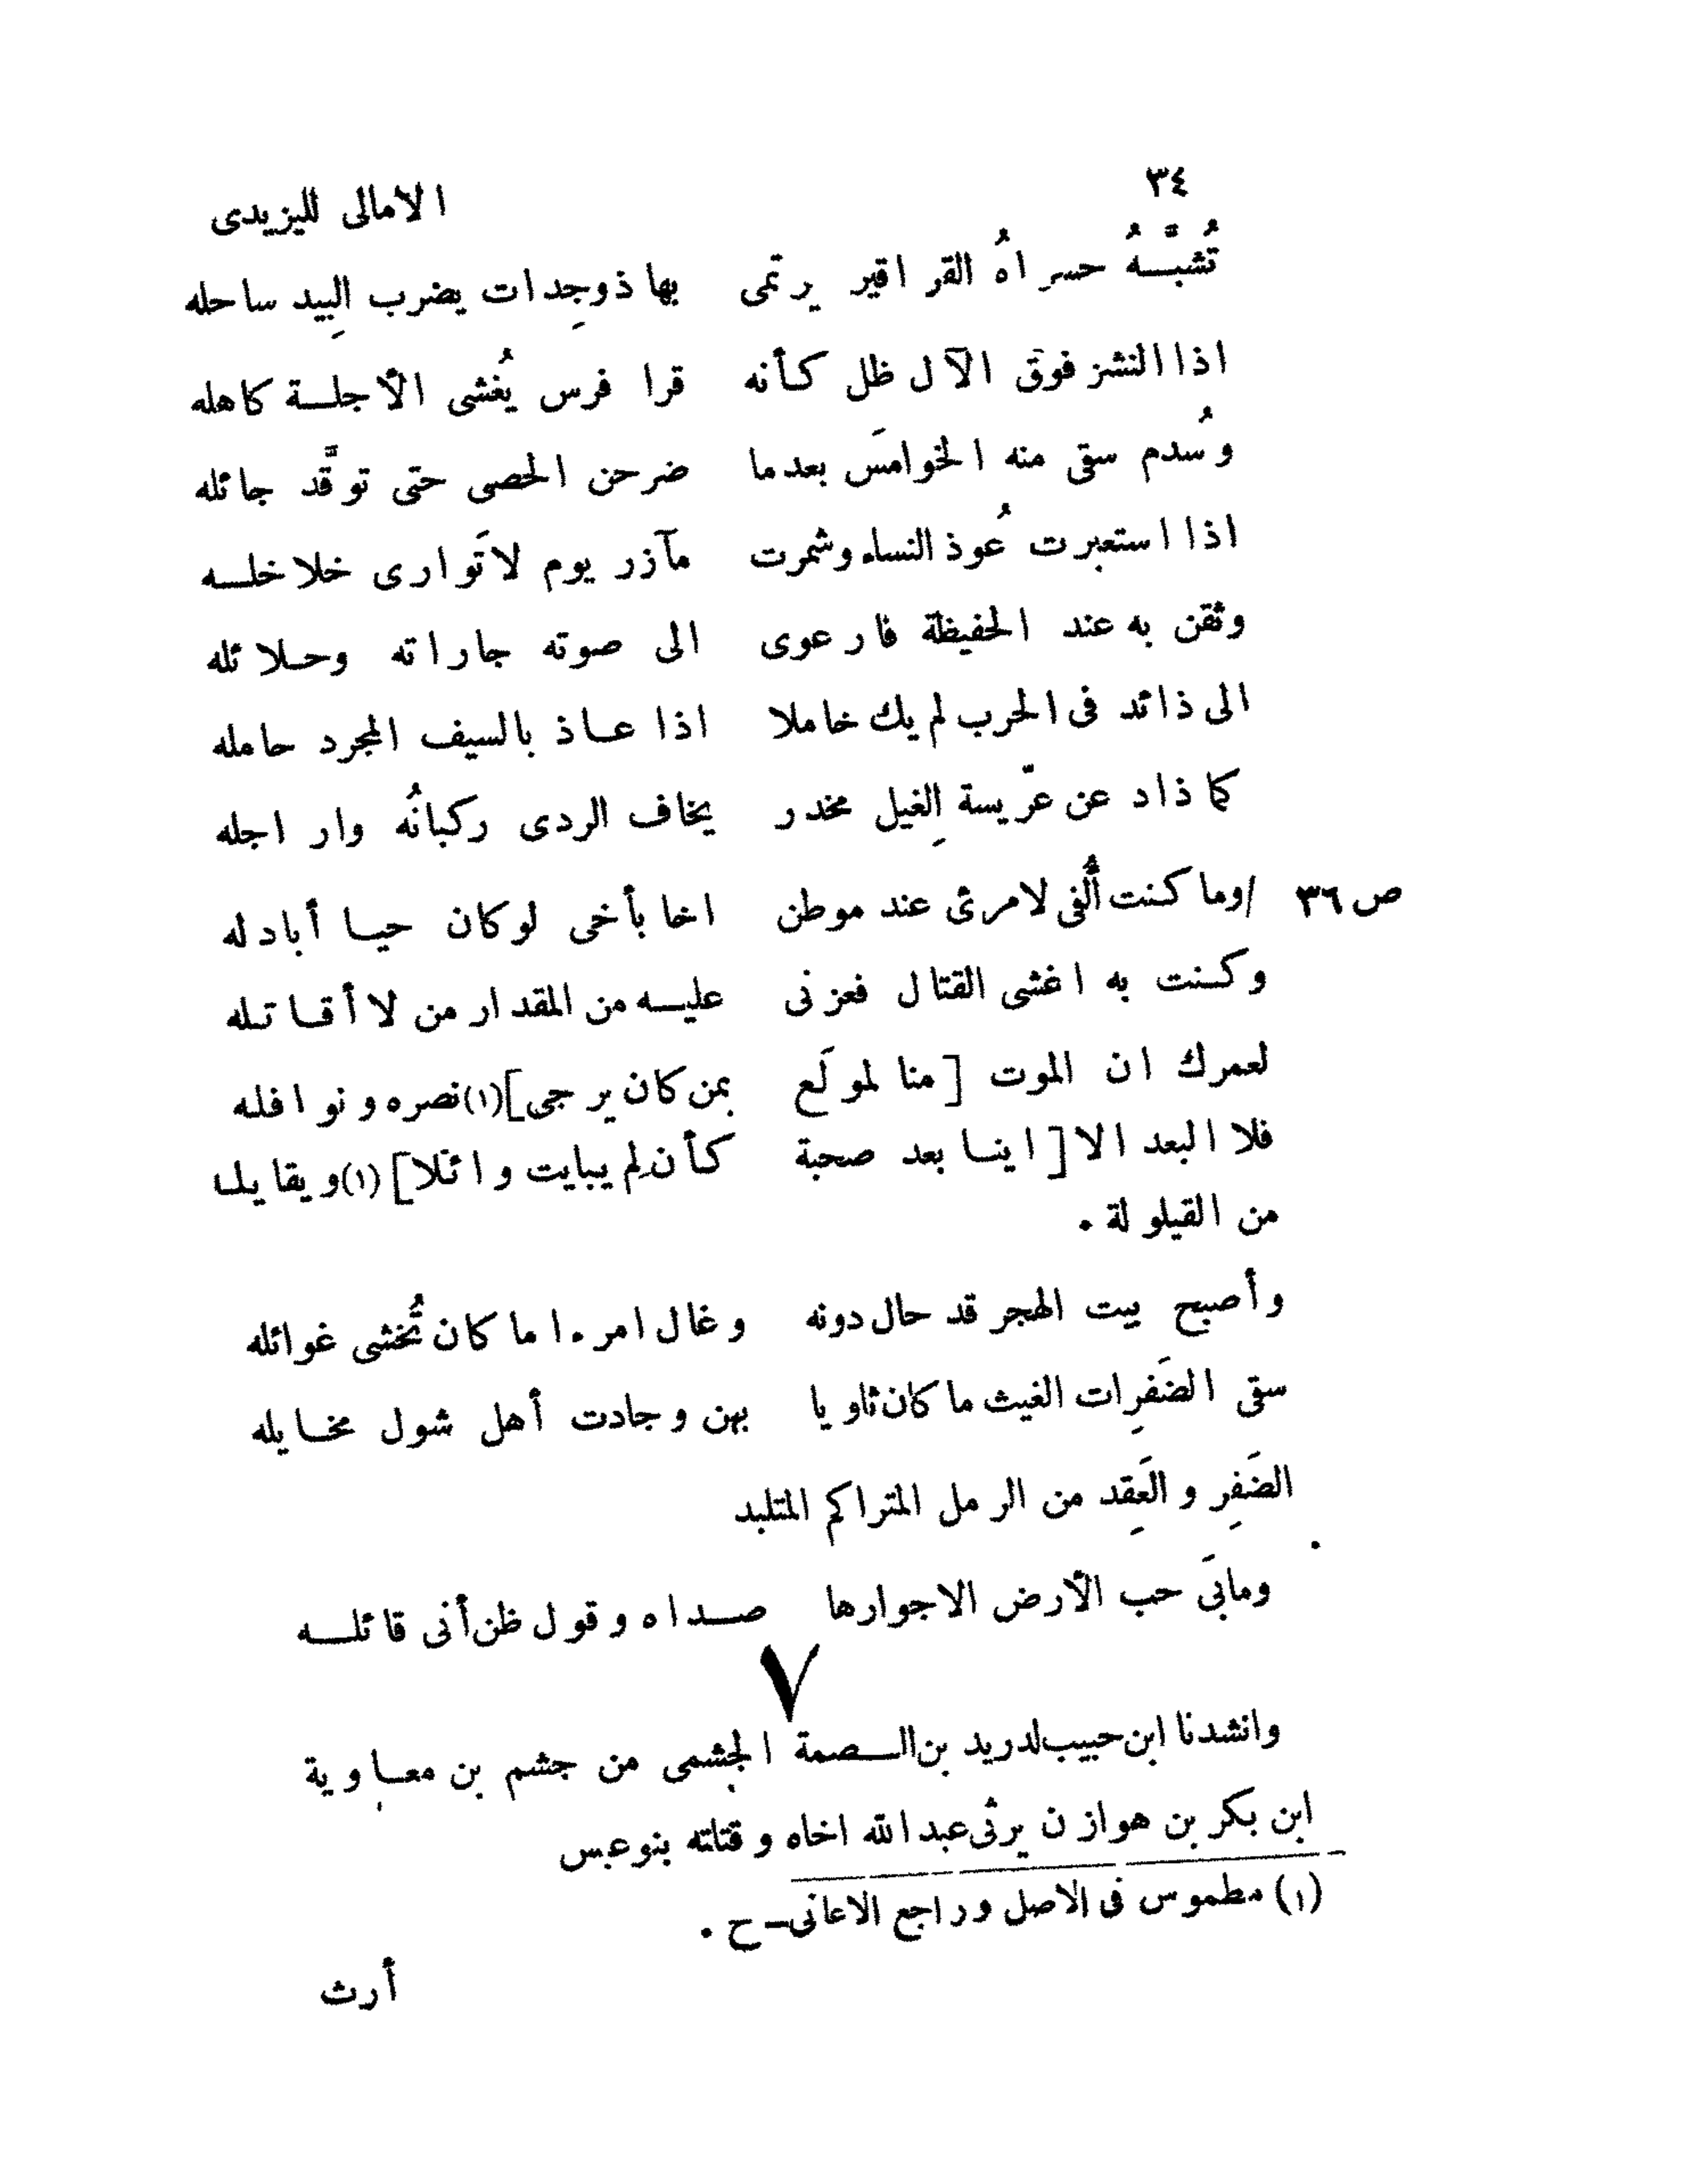 ٣٤
الامالى لليزيدى
تُشبَّهُ حسراهُ القراقير يرتمى بها ذوجِدات يضرب البِيد ساحله
اذا النشز فوق الآل ظل كأنه قرا فرس يُغشى الأجلة كاهله
وسُدم سقى منه الخوامسَ بعدما ضرحن الحصى حتى توقَّد جائله
اذا استعبرت عُوذ النساء وشمرت مآزر يوم لاتَوارى خلاخله
وثقن به عند الحفيظة فارعوى الى صوته جاراته وحلائله
الى ذائد فى الحرب لم يك خاملا اذا عاذ بالسيف المجرد حامله
كما ذاد عن عرّيسة الغِيل مخدر يخاف الردى ركبانُه واراجله
ص ٣٦ /وما كنت أُلفى لامرئ عند موطن اخا بأخى لوكان حيا أبادله
وكنت به اغشى القتال فعزنى عليه من المقدار من لا أقاتله
لعمرك ان الموت [منا لمولَع بمن كان يرجى](١) نصره ونوافله
فلا البعد الا [اينا بعد صحبة كأن لم يبايت وائلا](١) ويقايله
من القيلولة .
وأصبح بيت الهجر قد حال دونه وغال امرءا ما كان تُخشى غوائله
سقى الضَفِرات الغيث ما كان ثاويا بهن وجادت أهل شول مخايله
الضَفِر والعَقِد من الرمل المتراكم المتلبد
ومابىَ حب الأرض الاجوارها صداه وقول ظن أنى قائله
٧
وانشدنا ابن حبيب لدريد بن الصمة الجشمى من جشم بن معاوية
ابن بكر بن هوازن يرثى عبد الله اخاه وقتلته بنوعبس
(١) مطموس فى الاصل وراجع الاغانى – ح .
أرث